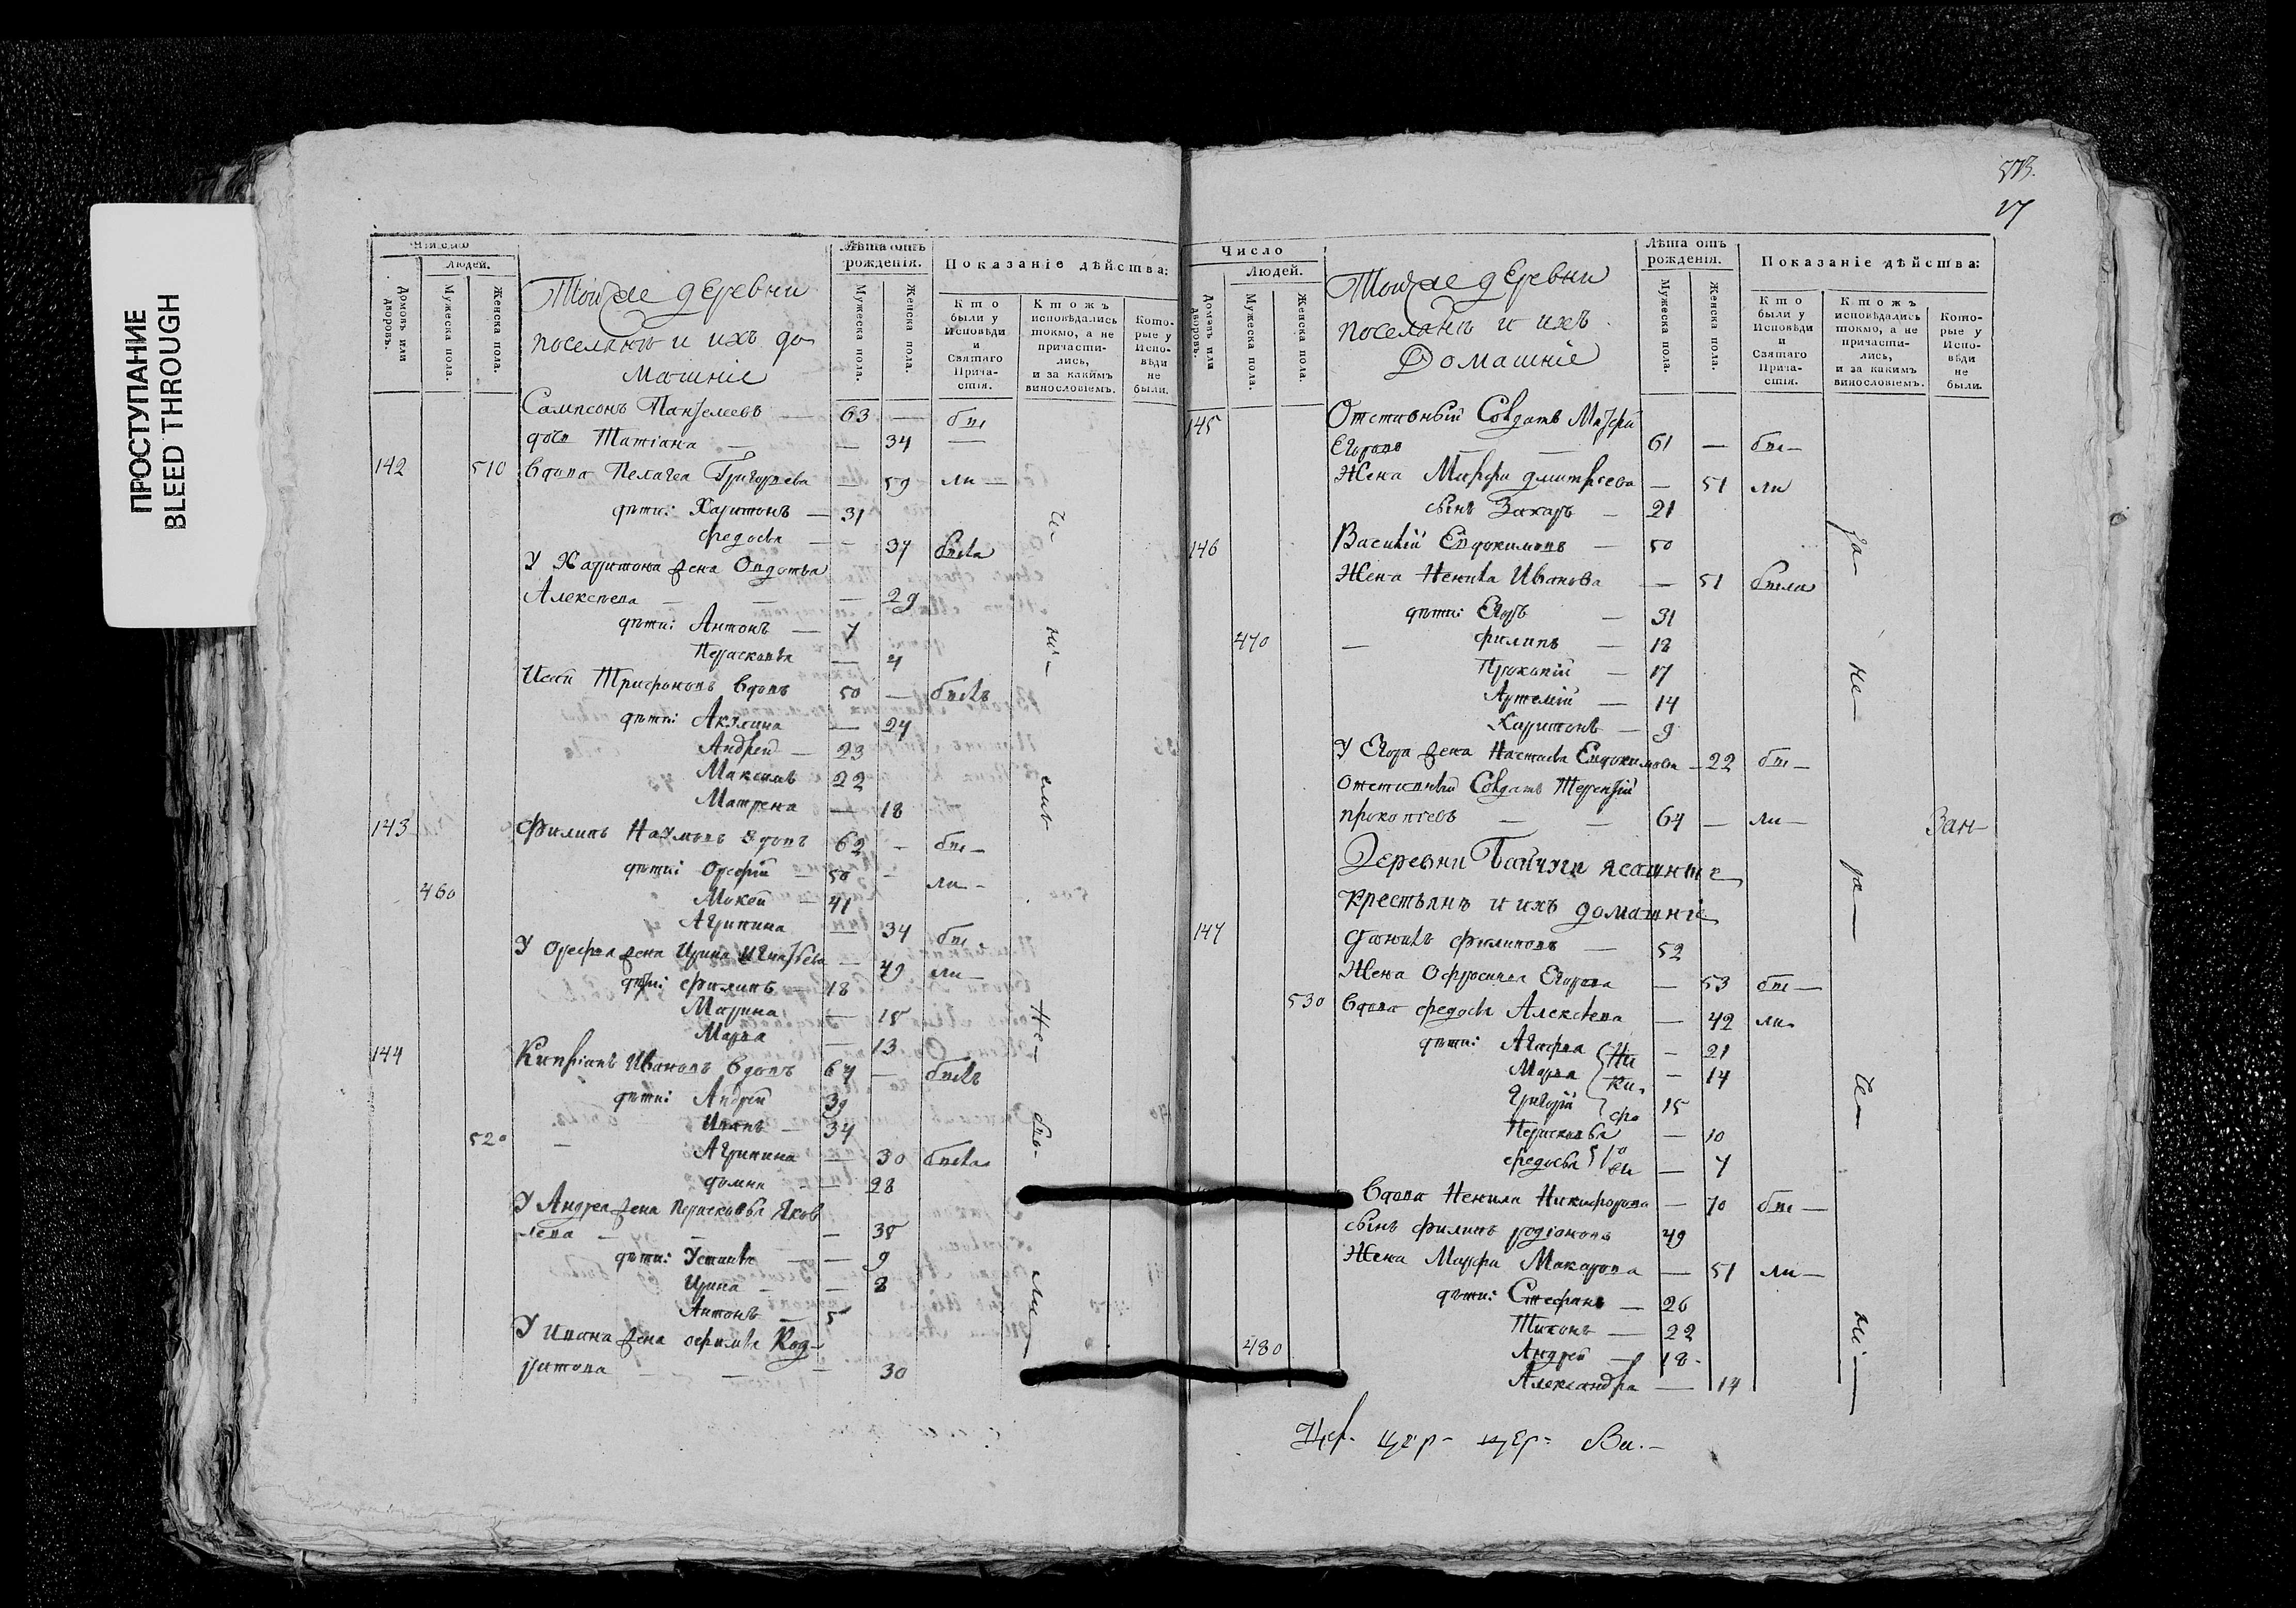 ПРОСТУПАНИЕ
BLEED THROUGH
Число
Людей.
Домовъ или дворовъ.
Мужеска пола.
Женска пола.
Тойже деревни
поселянъ и ихъ до
машніе
Лѣта отъ рожденія.
Мужеска пола.
Женска пола.
Показаніе дѣйства:
Кто были у Исповѣди и Святаго Причастія.
Ктожъ исповѣдались токмо, а не причастились, и за какимъ винословіемъ.
Которые у Исповѣди не были.
Сампсонъ Пантелеевъ — 63 — бы
дочь Татіана — — 34 —
142 510 вдова Пелагея Григорьева — 59 ли —
дѣти: Харитонъ — 31
Федосья — — 37 была
У Харитона жена Овдотья
Алексѣева — — — 29
дѣти: Антонъ — 7
Парасковья — 4
Исай Трифоновъ вдовъ 50 — былъ
дѣти: Акулина — 24
Андрей — 23
Максимъ 22
Матрена — 18
143 Филипъ Наумовъ вдовъ 62 — бы —
дѣти: Орефій — 50 — ли —
460 Мокей — 41
Агрипина — 34 бы
У Орефья жена Ирина Игнатьева — 49 ли —
дѣти: Филипъ — 18
Марина — 15
Марья — 13
144 Кипріанъ Ивановъ вдовъ 67 — былъ
дѣти: Андрей 39
Иванъ — 34
520 — Агрипина — 30 была
Домна — 28
У Андрея жена Парасковья Яков
лева — — — 35
дѣти: Устинья — — 9
Ирина — — 8
Антонъ — 5
У Ивана жена Офимья Код-
ратова — — 30
и- ис- Не- бы- ли
573.
17
Число
Людей.
Домовъ или дворовъ.
Мужеска пола.
Женска пола.
Тойже деревни
поселянъ и ихъ
Домашніе
Лѣта отъ рожденія.
Мужеска пола.
Женска пола.
Показаніе дѣйства:
Кто были у Исповѣди и Святаго Причастія.
Ктожъ исповѣдались токмо, а не причастились, и за какимъ винословіемъ.
Которые у Исповѣди не были.
145 Отставный Солдатъ
Егоровъ — — 61 — бы —
Жена Марфа Дмитріева — 51 ли
сынъ Захаръ — 21
146 Василій Евдокимовъ — 50
Жена Ненила Иванова — 51 были
дѣти: Егоръ — 31
470 — Филипъ — 18
Прокопій — 17
Артемій — 14
Харитонъ — 9
У Егора жена Настасья Евдокимова — 22 бы —
Отставный Солдатъ Терентій
Прокопіевъ — — 64 — ли — Зан-
Деревни ясашные
крестьянъ и ихъ домашніе
147 Данилъ Филиповъ — 52
Жена Офросинья Егорова — 53 бы —
530 вдова Федосья Алексѣева — 42 ли
дѣти: Агафья — 21
Марья — 14
Григорій 15
Парасковья — 10
Федосья — 7
Ни
ки
фо
ро
вы
вдова Ненила Никифорова — 70 бы —
сынъ Филипъ Родіоновъ 49
Жена Марфа Макарова — 51 ли —
дѣти: Стефанъ — 26
Тихонъ — 22
480 Андрей — 18
Александра — 14
За- не- ра-
Цер- цер- Ва.-